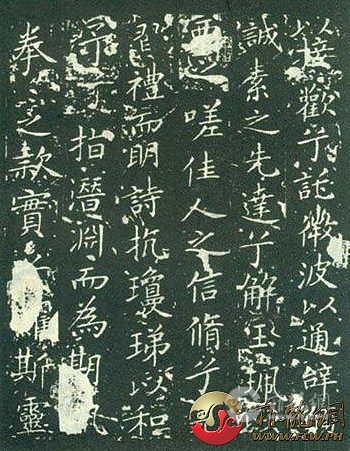 接歡兮託微波以通辭
誠素之先達兮解玉珮
要之嗟佳人之信脩兮
習禮而明詩抗瓊珶以和
予兮指潛淵而為期
拳之款實懼斯靈